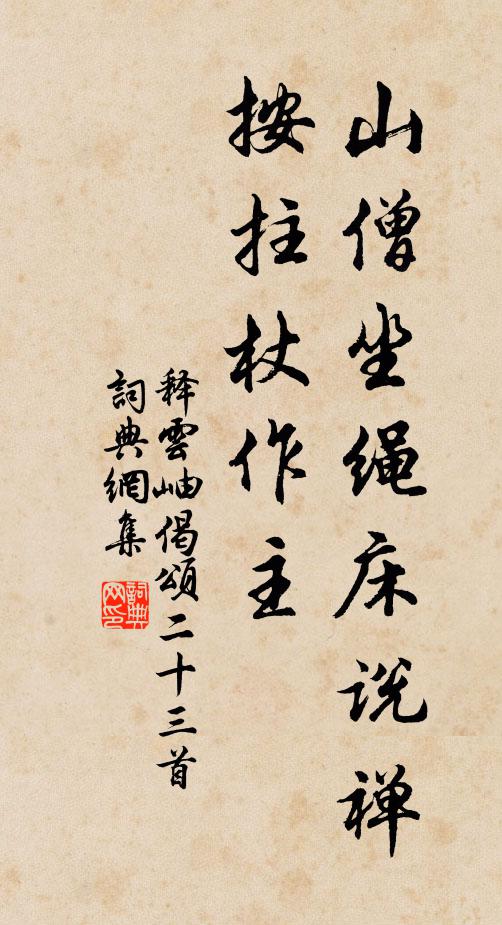 山僧坐绳床说禅
按拄杖作主
释雲岫偈頌二十三首
詞典網集
詞典网印